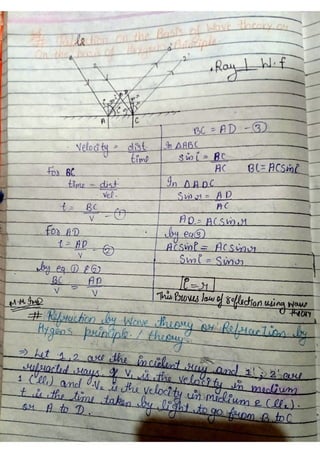 Reflection on the Basis of Wave theory or
On the basis of Huygen's Principle
1
2
1'
2'
B
D
A
C
Ray ⊥ W.f
BC = AD - ③
Velocity = dist
time
for BC
time = dist
Vel.
t = BC - ①
V
for AD
t = AD - ②
V
by eq ① & ②
BC = AD
V V
In ΔABC
Sin i = BC
AC BC = AC Sin i
In ΔADC
Sin r = AD
AC
AD = AC Sin r
by eq ③
AC Sin i = AC Sin r
Sin i = Sin r
i = r
This Proves law of reflection using wave
theory
# Refraction by Wave theory or Refraction by
Hygens principle / theory
⇒ Let 1, 2 are the incident ray and 1', 2' are
refracted rays if V₁ is the velocity in medium
1 (μ₁) and V₂ is the velocity in midium 2 (μ₂).
t is the time taken by light to go from B to C
or A to D.